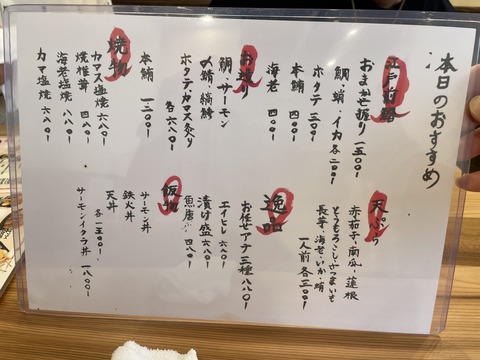 本日のおすすめ
江戸前鮨
おまかせ握り 一五〇〇ー
鯛、蛸、イカ各二〇〇ー
ホタテ 三〇〇ー
本鮪 四〇〇ー
海老 四〇〇ー
お造り
鯛、サーモン
〆鯖、縞鯵
ホタテ、カマス炙り
各 六八〇ー
本鮪 一二〇〇ー
焼物
カマス塩焼 六八〇ー
焼椎茸 四八〇ー
海老塩焼 八八〇ー
カマ塩焼 六八〇ー
天ぷら
赤茄子、南瓜、蓮根
とうもろこし、さつまいも
長芋、海老、いか、蛸
一人前 各三〇〇ー
逸品
お任せアテ三種 八八〇ー
エイヒレ 六八〇ー
漬け盛 六八〇ー
魚唐 四八〇ー
飯物
サーモン丼
鉄火丼
天丼
各一五〇〇ー
サーモンイクラ丼 一八〇〇ー